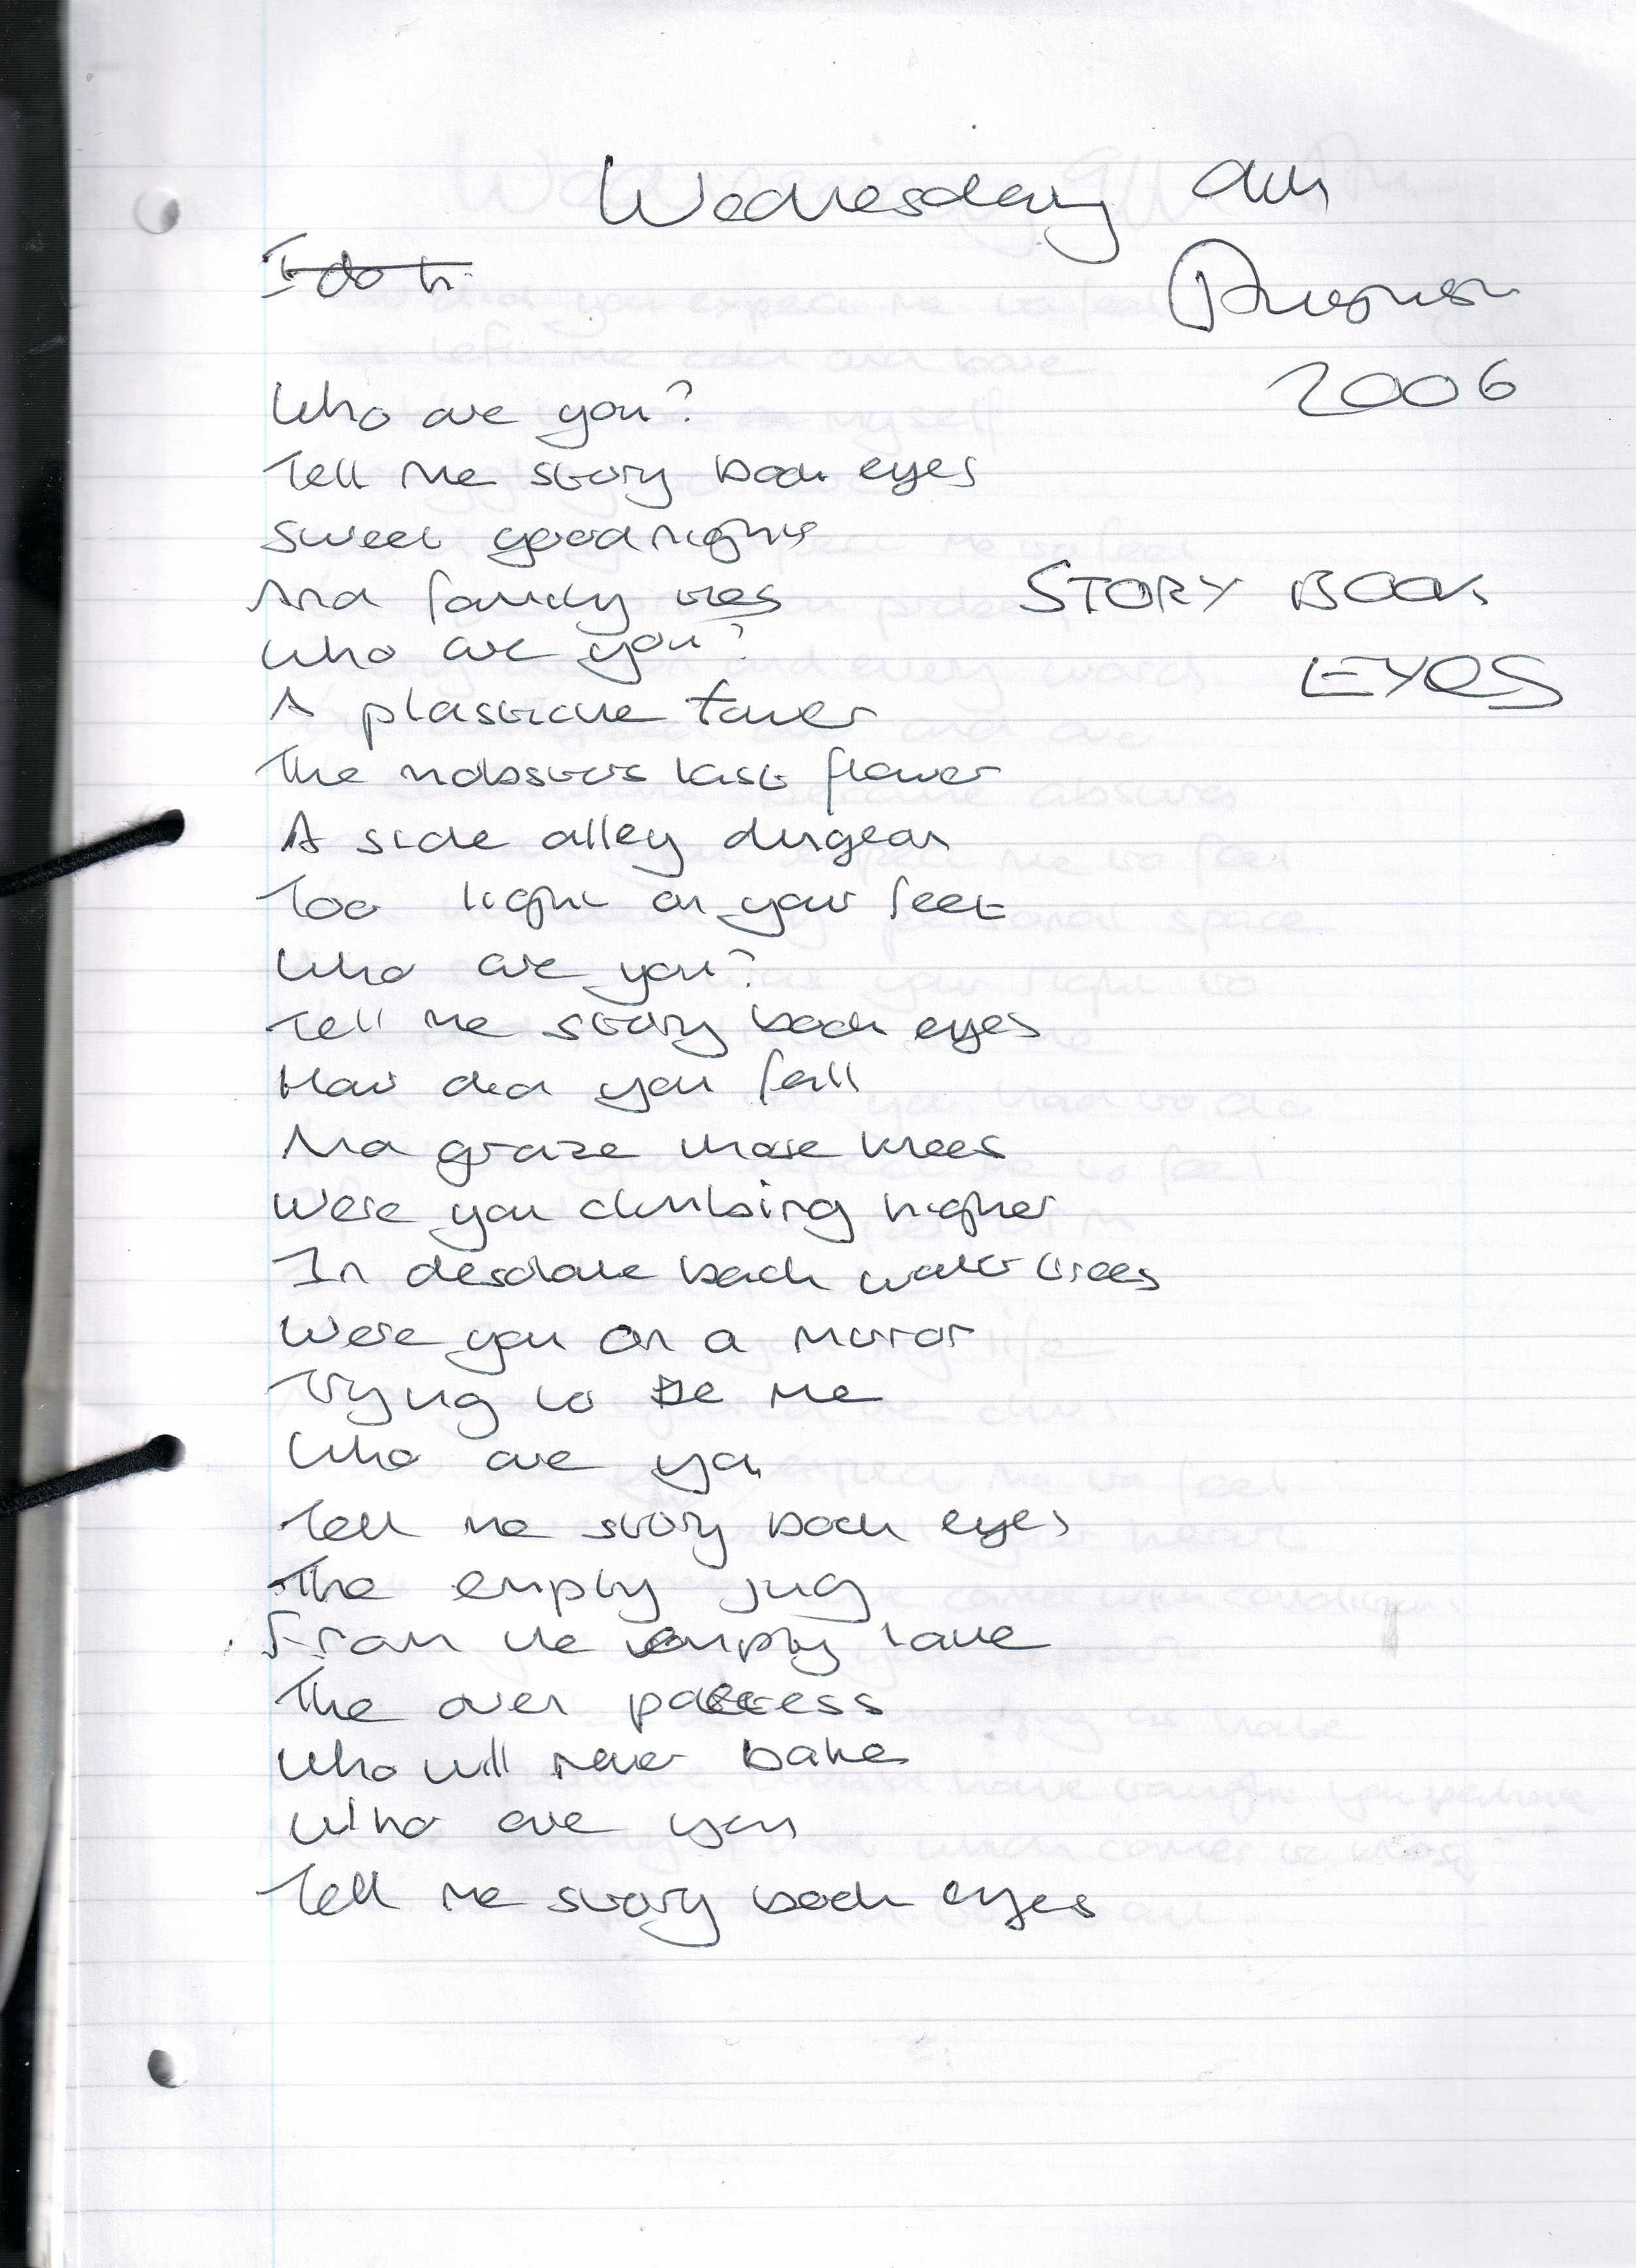 Wednesday 9th
August
2006
I do n
Who are you?
Tell me story book eyes
Sweet goodnights
And family ties
STORY BOOK
EYES
Who are you?
A plasticine tower
The last flower
A side alley dungeon
Too light on your feet
Who are you?
Tell me story book eyes
How did you fall
And graze those knees
Were you climbing higher
In desolate back water trees
Were you on a mirror
Trying to be me
Who are you
Tell me story book eyes
The empty jug
From the empty lake
The over
Who will never bake
Who are you
Tell me story book eyes